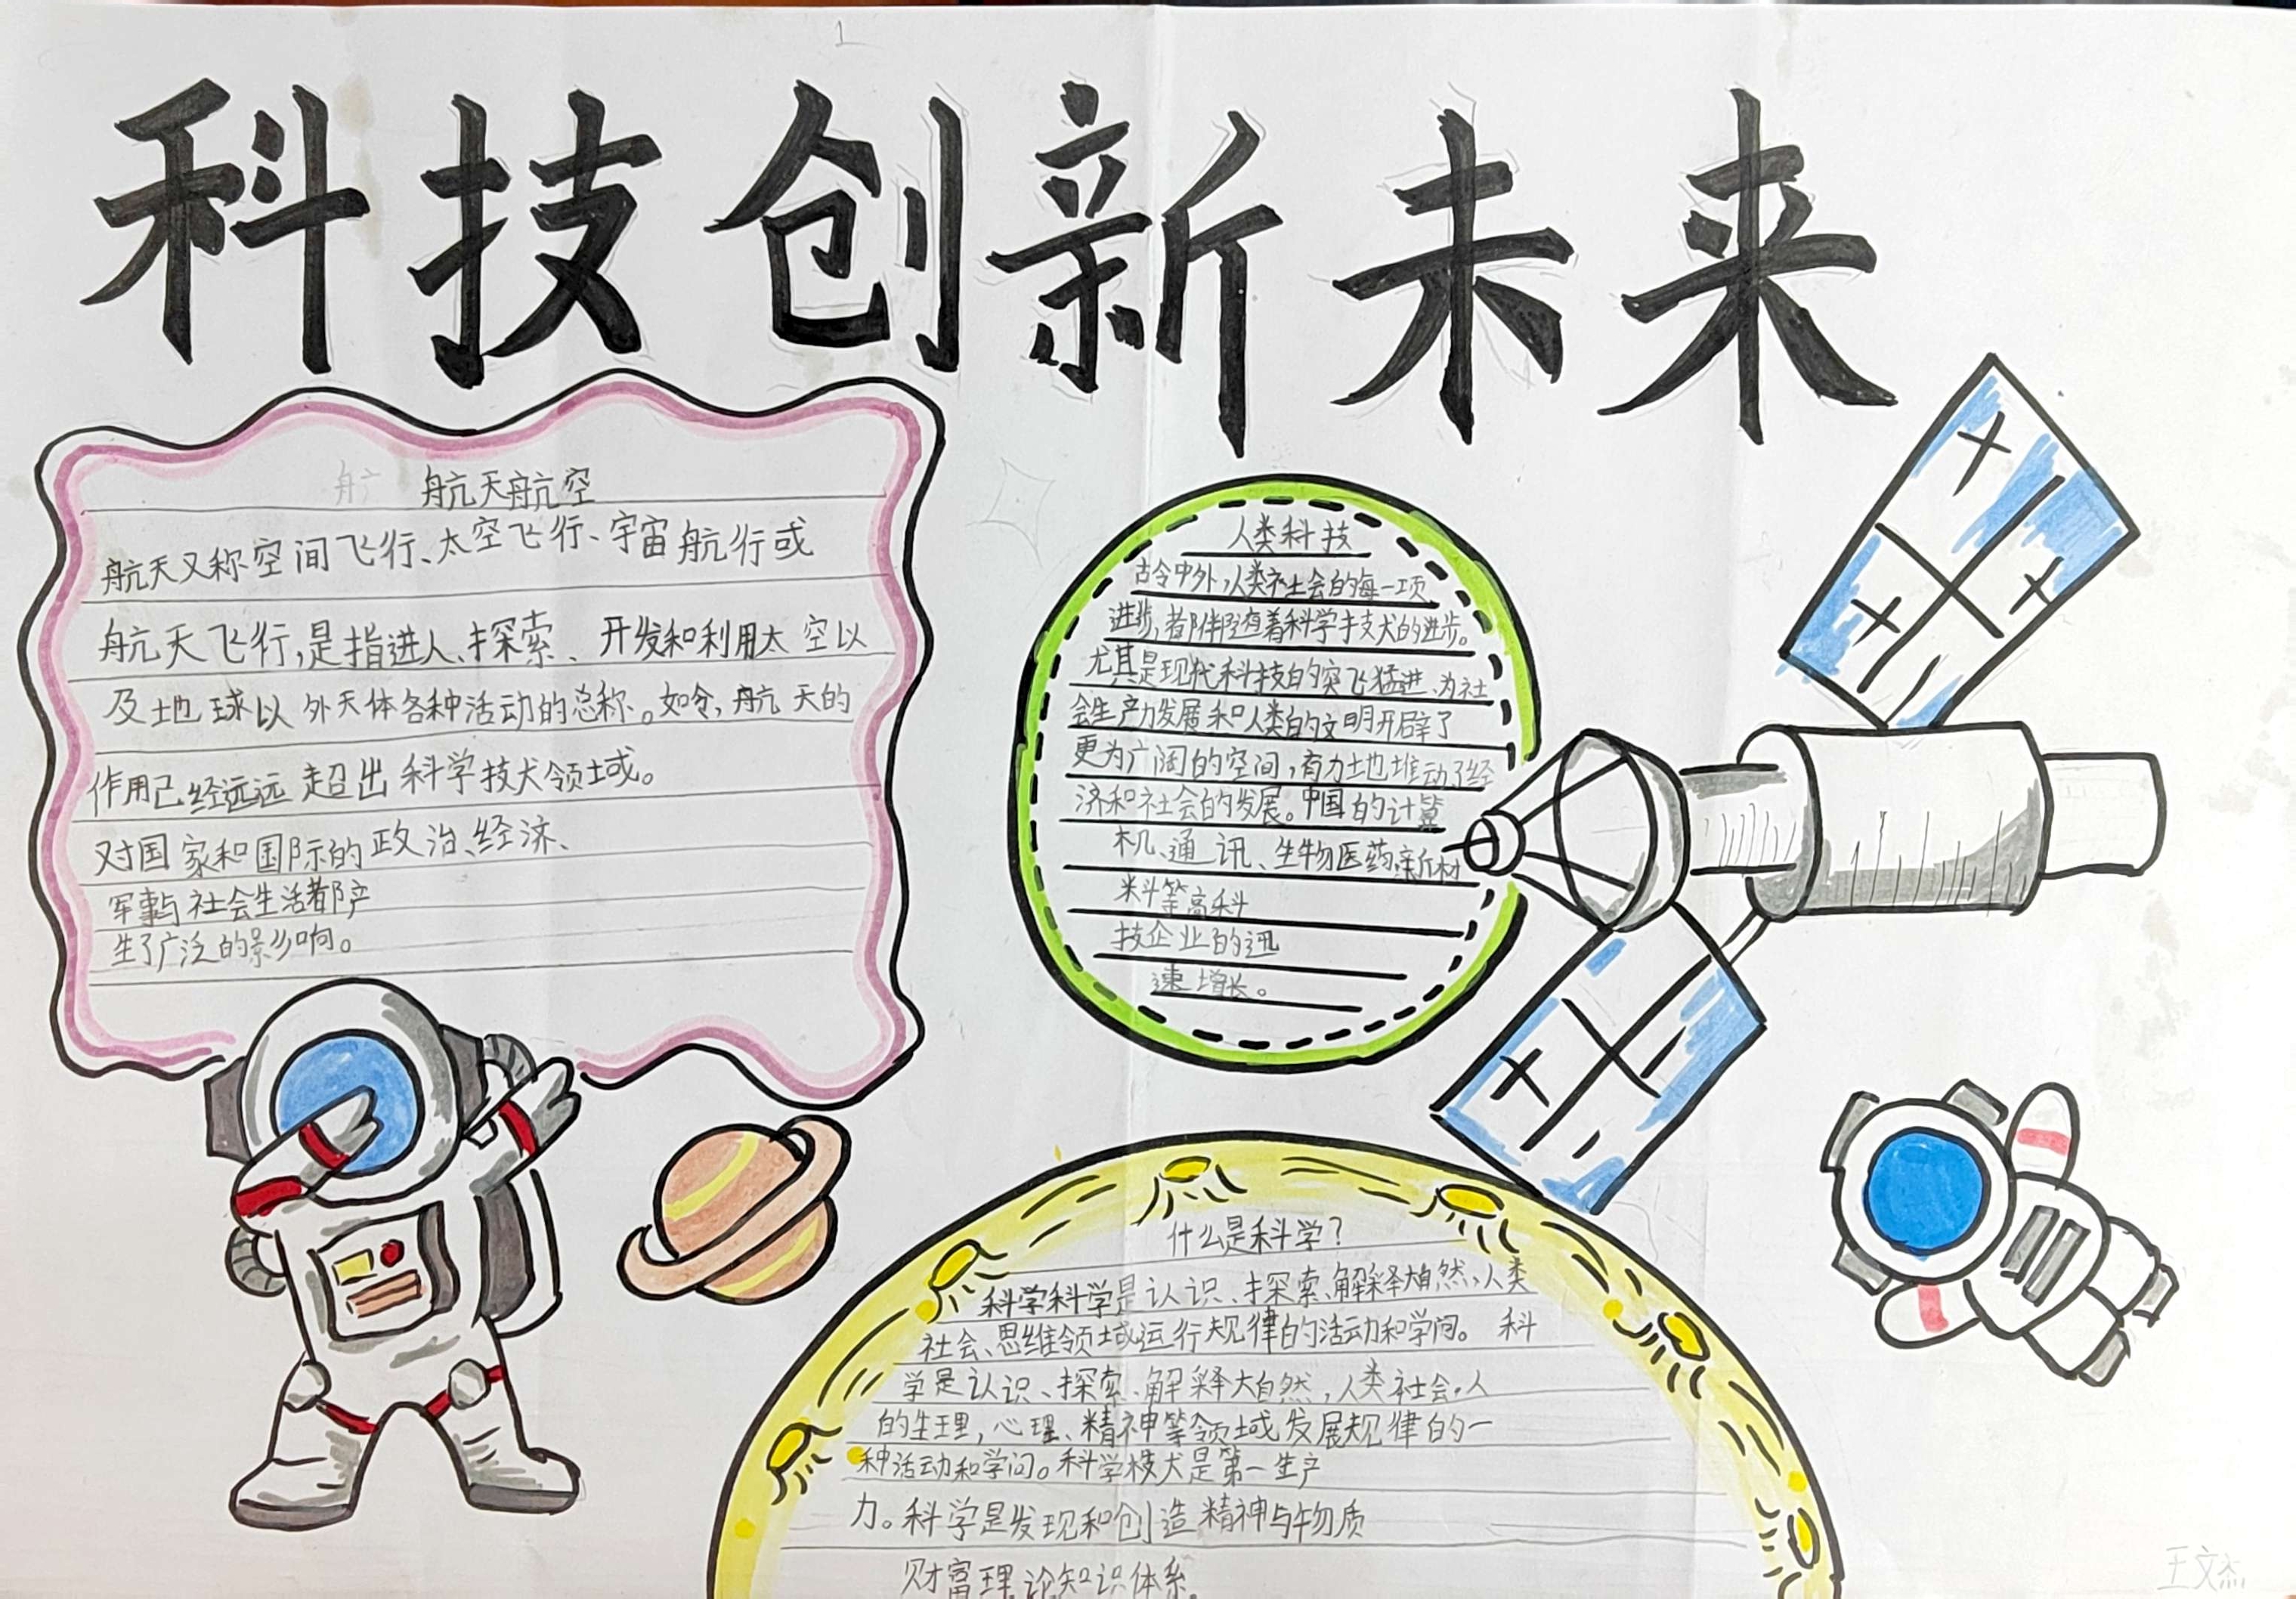 科技创新未来
航天航空
航天又称空间飞行、太空飞行、宇宙航行或
航天飞行,是指进人、探索、开发和利用太空以
及地球以外天体各种活动的总称。如今,航天的
作用已经远远超出科学技犬领域。
对国家和国际的政治、经济、
军事与社会生活都产
生了广泛的影响。
人类科技
古今中外,人类社会的每一项
进步,都伴随着科学技犬的进步。
尤其是现代科技的突飞猛进,为社
会生产力发展和人类的文明开辟了
更为广阔的空间,有力地推动了经
济和社会的发展。中国的计算
机、通讯、生物医药、新材
料等高科
技企业的迅
速增长。
什么是科学?
科学科学是认识、探索、解释大自然,人类
社会、思维领域运行规律的活动和学问。科
学是认识、探索、解释大自然,人类社会,人
的生理,心理、精神等领域发展规律的一
种活动和学问。科学技犬是第一生产
力。科学是发现和创造精神与物质
财富理论知识体系。
王文杰